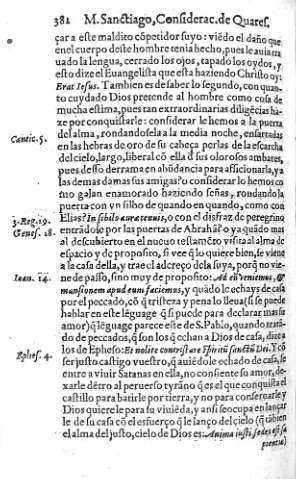 382 M. Sanctiago, Considerac. de Quares.
çar a este maldito cõpetidor suyo: viédo el daño que
en el cuerpo deste hombre tenia hecho, pues le auia tra
uado la lengua, cerrado los ojos, tapado los oydos, y
esto dize el Euangelista que esta haziendo Christo oy:
Erat Iesus. Tambien es de saber lo segundo, con quan-
to cuydado Dios pretende al hombre como cosa de
mucha estima, pues tan extraordinarias diligẽcias ha-
ze por conquistarle: considerar le hemos a la puerta
Cantic. 5.
del alma, rondandosela a la media noche, ensartadas
en las hebras de oro de su cabeça perlas de la escarcha
del cielo, largo, liberal cõ ella d sus olorosos ambares,
pues desso derrama en abũdancia para afficionarla, y a
las demas damas sus amigas? o considerar lo hemos co
mo galan enamorado haziendo señas, rondando la
puerta con vn silbo de quando en quando, como con
3. Reg. 19.
Elias? In sibilo auræ tenuis, o con el disfraz de peregrino
Genes. 18.
entrãdose por las puertas de Abrahã? o ya quãdo mas
al descubierto en el nueuo testamẽto visita al alma de
espacio y de proposito, si vee q̃ lo quiere bien, se viene
a la casa della, y trae el adreço dela suya, porq̃ no vie-
Ioan. 14.
ne de passo, sino muy de proposito: Ad eũ veniemus, &
mansionem apud eum faciemus, y quãdo le echays de casa
por el peccado, cõ q̃ tristeza y pena lo lleua (si se puede
hablar en este lẽguage q̃ si puede para declarar mas su
amor) q̃ lẽguage parece este de S. Pablo, quando tratã-
do de peccados, q̃ son los q̃ echan a Dios de casa, dize a
Ephes. 4.
los de Epheso: Et nolite contristare Spiritũ sanctũ Dei. Y cõ
ser justo castigo vuestro, q̃ auiẽdole echado de casa, se
entre a viuir Satanas en ella, no consiente su amor, de-
xarle dẽtro al peruerso tyrãno q̃ es el que conquista el
castillo para batirle por tierra, y no para conseruarle y
Dios quiere le para su viuiẽda, y ansi se ocupa en lançar
le de su casa cõ el esfuerço q̃ le lanço del cielo (q̃ tãbien
el alma del justo, cielo de Dios es: Anima iusti, sedes est sa
pientiæ)